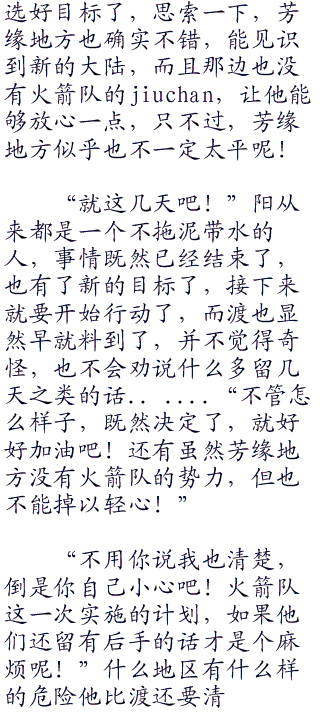 选好目标了，思索一下，芳
缘地方也确实不错，能见识
到新的大陆，而且那边也没
有火箭队的jiuchan，让他能
够放心一点，只不过，芳缘
地方似乎也不一定太平呢！
“就这几天吧！”阳从
来都是一个不拖泥带水的
人，事情既然已经结束了，
也有了新的目标了，接下来
就要开始行动了，而渡也显
然早就料到了，并不觉得奇
怪，也不会劝说什么多留几
天之类的话.. ....“不管怎
么样子，既然决定了，就好
好加油吧！还有虽然芳缘地
方没有火箭队的势力，但也
不能掉以轻心！”
“不用你说我也清楚，
倒是你自己小心吧！火箭队
这一次实施的计划，如果他
们还留有后手的话才是个麻
烦呢！”什么地区有什么样
的危险他比渡还要清